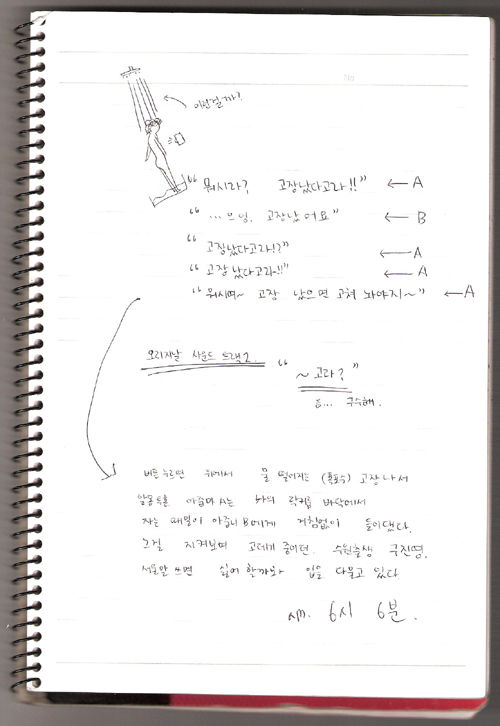 No
이런걸까?
"뭐시라? 고장났다고라!!" ← A
"...으닝. 고장났어요" ← B
"고장났다고라!?" ← A
"고장났다고라-!!" ← A
"뭐시여~ 고장 났으면 고쳐 놔야지~" ← A
오리지날 사운드 트랙2. "~고라?"
음... 구수해.
버튼누르면 위에서 물 떨어지는 (폭포수) 고장나서
아줌마A는 락커룸 바닥에서
자는 때밀이 아줌니B에게 거침없이 들이댔다.
그걸 지켜보며 고데기 중이던. 수원출생 구진영.
서울말 쓰면 싫어 할까봐 입을 다물고 있다.
AM. 6시 6분.